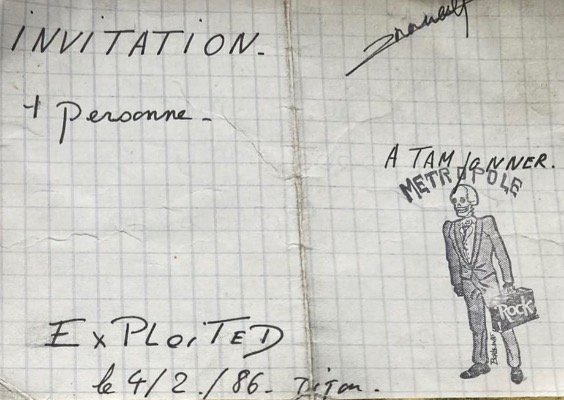 INVITATION.
1 personne -
A TAMponNER.
METROPOLE
Rock
ExPLoiTED
le 4/2./86- Dijon.